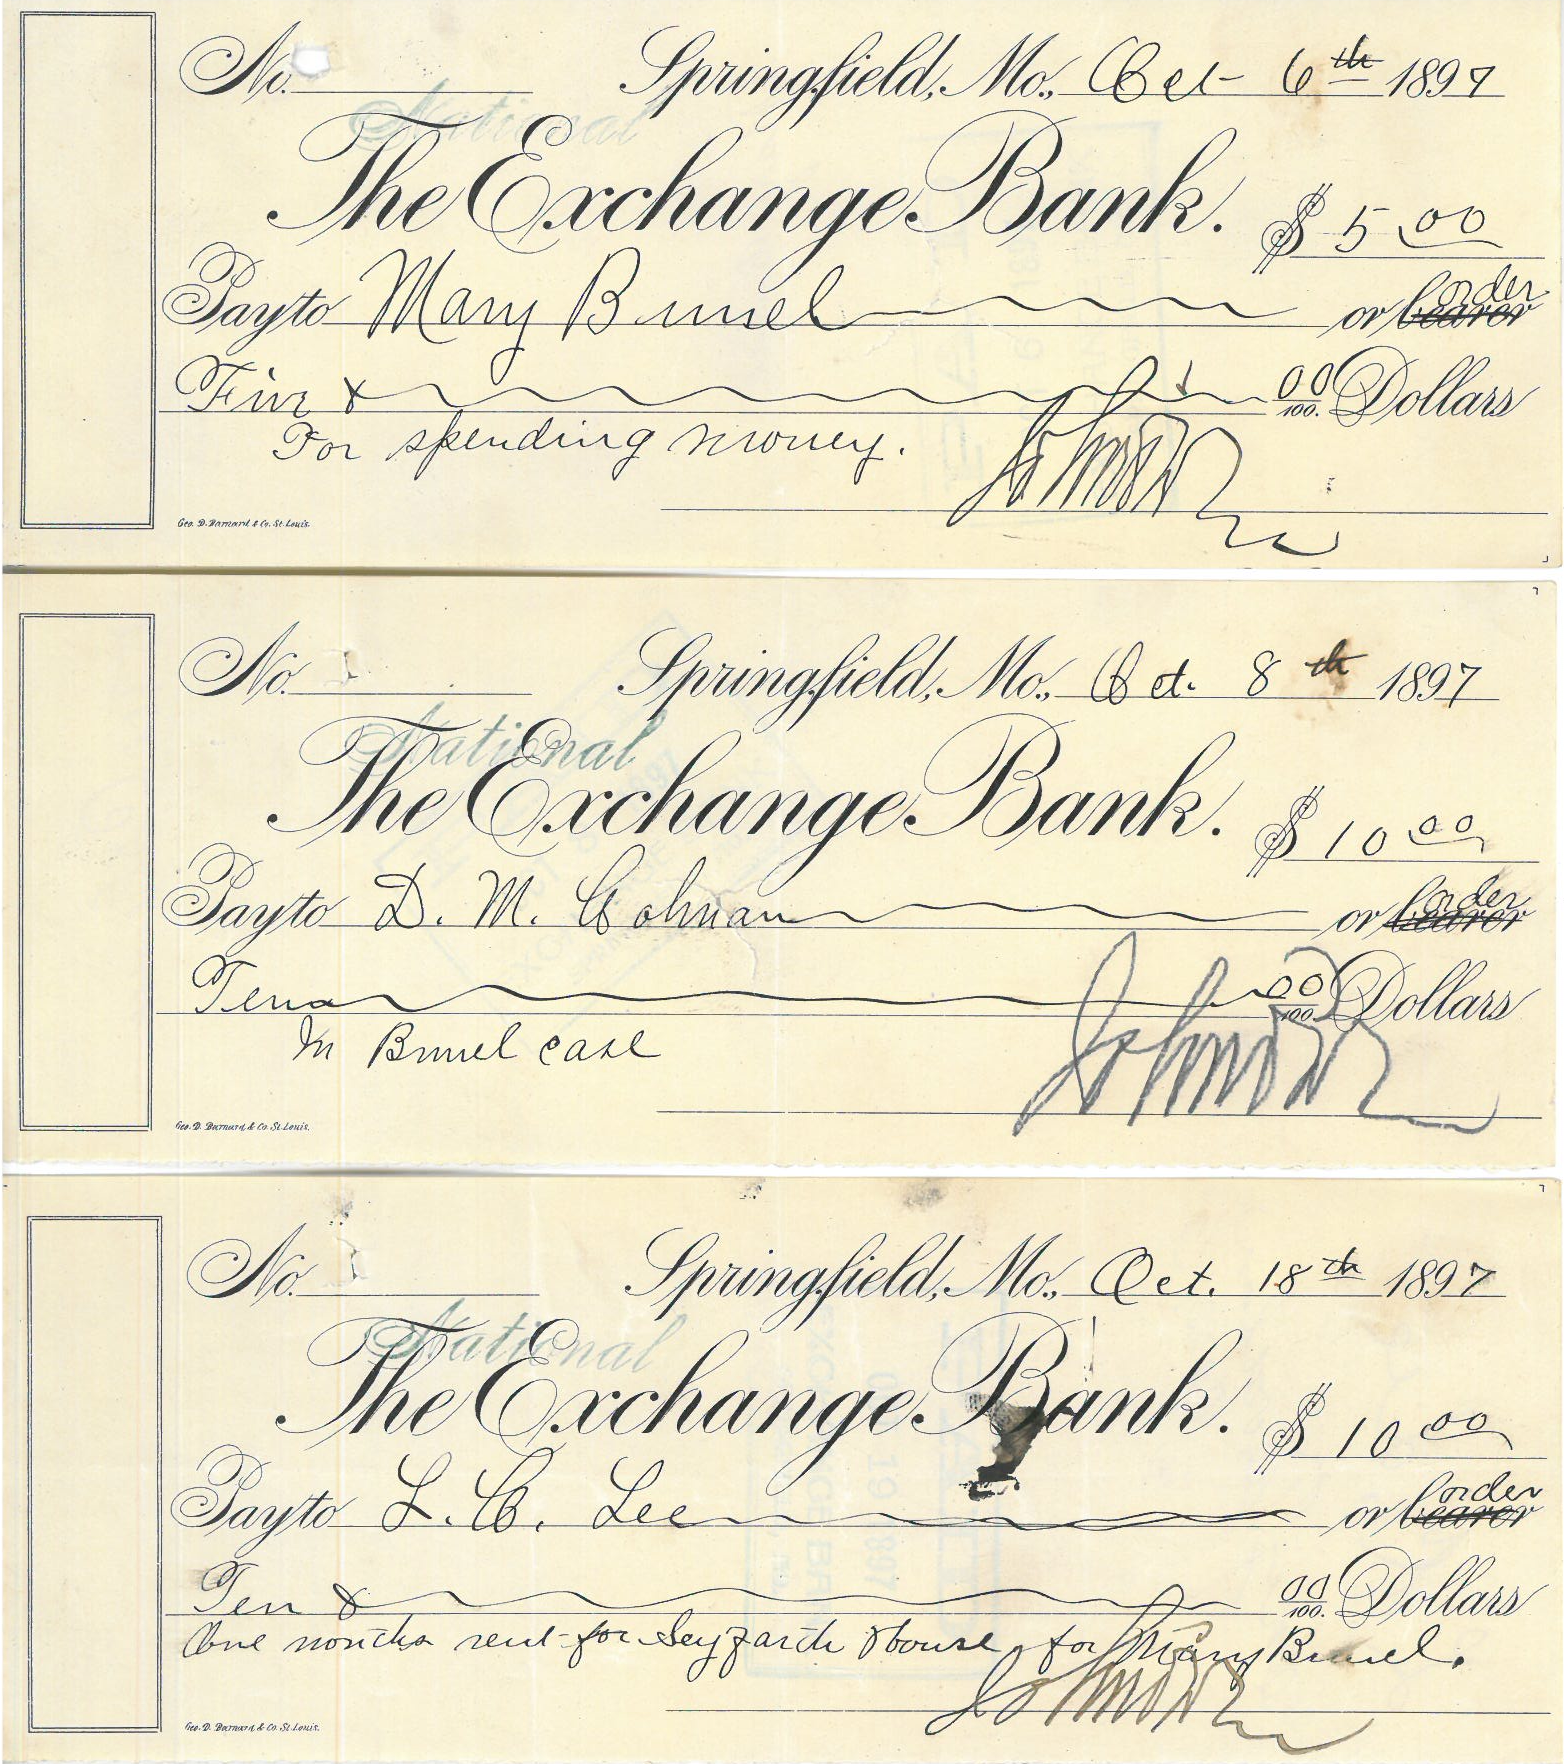 No. Springfield, Mo., Oct 6th 1897
National
The Exchange Bank. $ 5.00
Pay to Mary Bunel or bearer order
Five & 00/100. Dollars
For spending money.
Geo. D. Barnard & Co. St. Louis.
No. Springfield, Mo., Oct. 8th 1897
National
The Exchange Bank. $ 10 00
Pay to D. M. Colman or bearer order
Ten 00/100. Dollars
In Bunel case
Geo. D. Barnard & Co. St. Louis.
No. Springfield, Mo., Oct. 18th 1897
National
The Exchange Bank. $ 10 00
Pay to L. C. Lee or bearer order
Ten & 00/100. Dollars
One months rent for Seyfarth House, for Mary Bunel.
Geo. D. Barnard & Co. St. Louis.